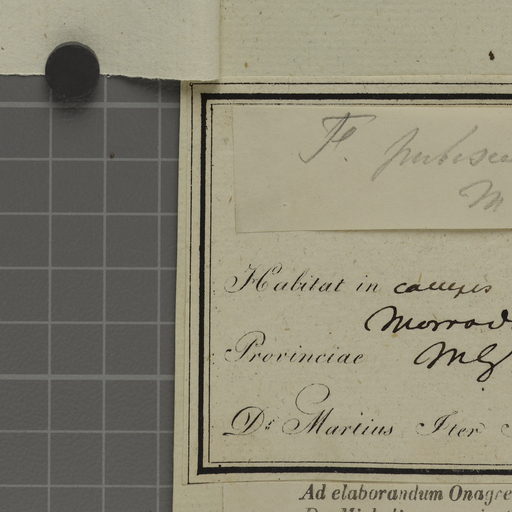 F. pubesce
M
Habitat in campis
Morrad
Provinciae MG
Dr Martius Iter
Ad elaborandum Onagre